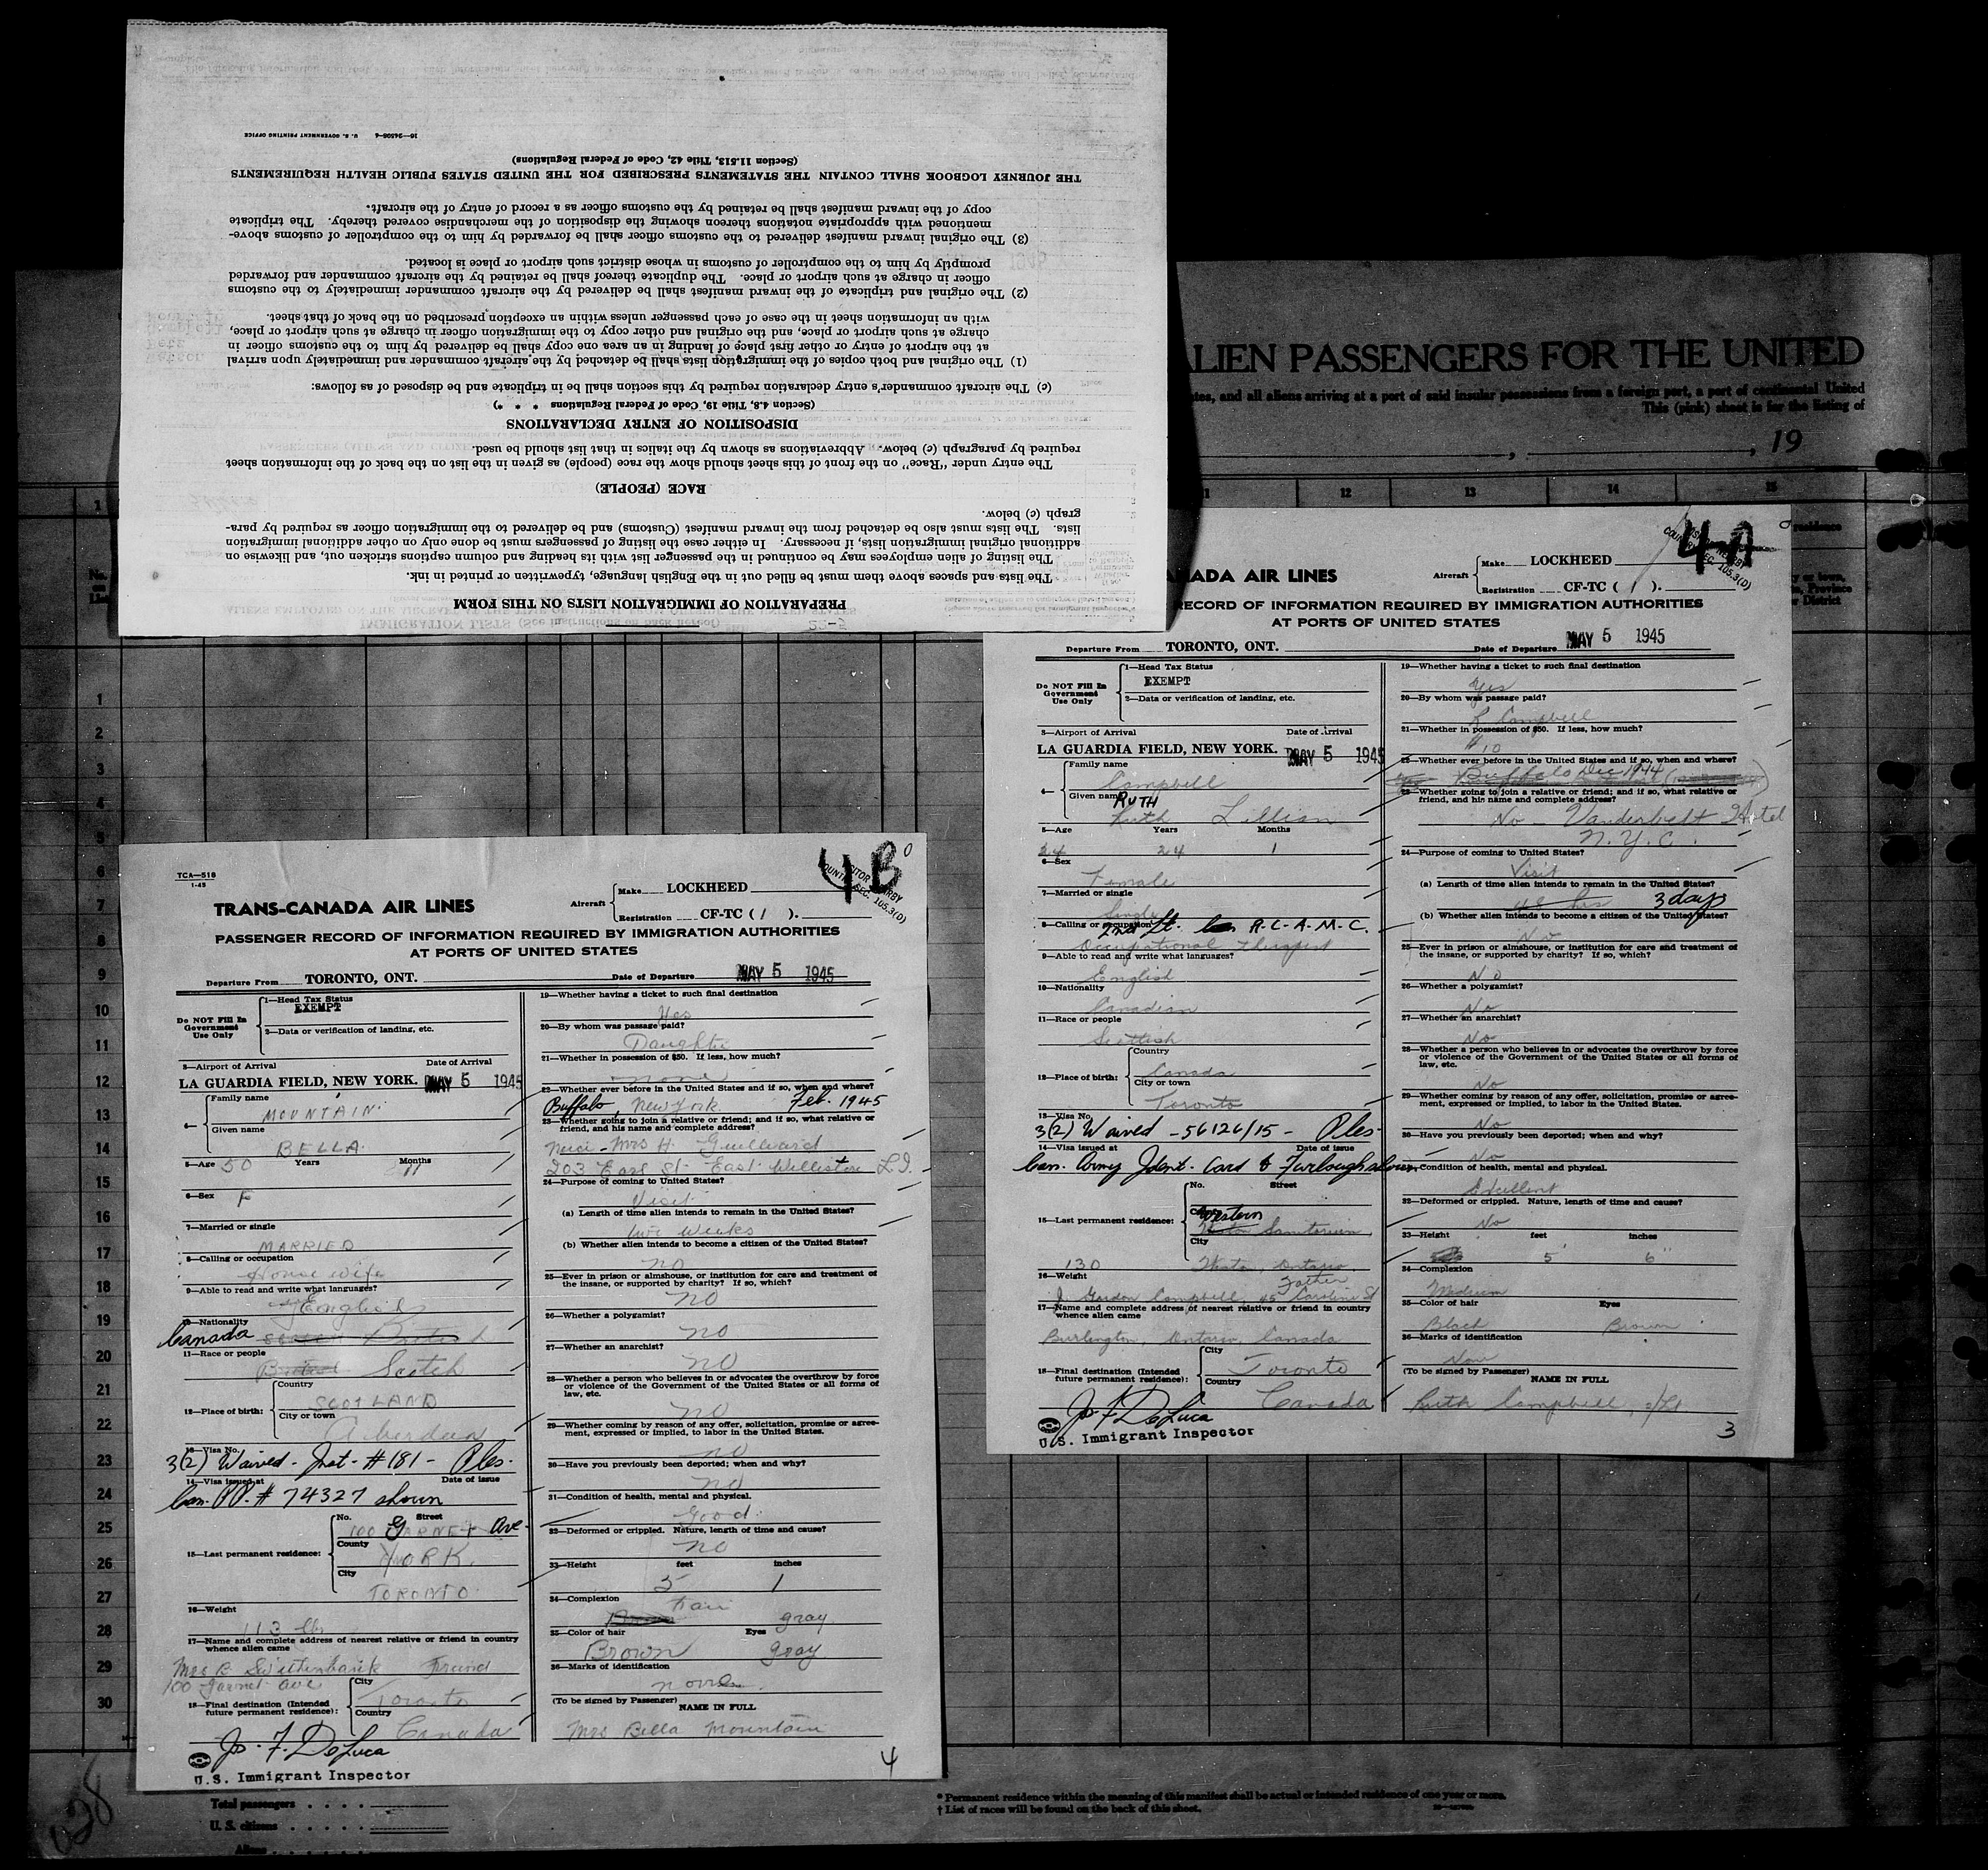 16—24508-4 U. S. GOVERNMENT PRINTING OFFICE
(Section 11.513, Title 42, Code of Federal Regulations)
THE JOURNEY LOGBOOK SHALL CONTAIN THE STATEMENTS PRESCRIBED FOR THE UNITED STATES PUBLIC HEALTH REQUIREMENTS
copy of the inward manifest shall be retained by the customs officer as a record of entry of the aircraft.
mentioned with appropriate notations thereon showing the disposition of the merchandise covered thereby. The triplicate
(3) The original inward manifest delivered to the customs officer shall be forwarded by him to the comptroller of customs above-
promptly by him to the comptroller of customs in whose district such airport or place is located.
officer in charge at such airport or place. The duplicate thereof shall be retained by the aircraft commander and forwarded
(2) The original and triplicate of the inward manifest shall be delivered by the aircraft commander immediately to the customs
with an information sheet in the case of each passenger unless within an exception prescribed on the back of that sheet.
charge at such airport or place, and the original and other copy to the immigration officer in charge at such airport or place,
at the airport of entry or other first place of landing in an area one copy shall be delivered by him to the customs officer in
(1) The original and both copies of the immigration lists shall be detached by the aircraft commander and immediately upon arrival
(c) The aircraft commander's entry declaration required by this section shall be in triplicate and be disposed of as follows:
(Section 4.8, Title 19, Code of Federal Regulations * * *)
DISPOSITION OF ENTRY DECLARATIONS
required by paragraph (c) below. Abbreviations as shown by the italics in that list should be used.
The entry under "Race" on the front of this sheet should show the race (people) as given in the list on the back of the information sheet
RACE (PEOPLE)
graph (c) below.
lists. The lists must also be detached from the inward manifest (Customs) and be delivered to the immigration officer as required by para-
additional original immigration lists, if necessary. In either case the listing of passengers must be done only on other additional immigration
The listing of alien employees may be continued in the passenger list with its heading and column captions stricken out, and likewise on
The lists and spaces above them must be filled out in the English language, typewritten or printed in ink.
PREPARATION OF IMMIGRATION LISTS ON THIS FORM
ALIEN PASSENGERS FOR THE UNITED
tes, and all aliens arriving at a port of said insular possessions from a foreign port, a port of continental United
This (pink) sheet is for the listing of
, 19
11 12 13 14 15
4-A
ANADA AIR LINES
Aircraft Make LOCKHEED
Registration CF-TC ( / ).
RECORD OF INFORMATION REQUIRED BY IMMIGRATION AUTHORITIES
AT PORTS OF UNITED STATES
Departure From TORONTO, ONT. Date of Departure MAY 5 1945
Do NOT Fill In Government Use Only
1—Head Tax Status
EXEMPT
2—Data or verification of landing, etc.
3—Airport of Arrival Date of Arrival
LA GUARDIA FIELD, NEW YORK. MAY 5 1945
4— Family name
Campbell
Given name RUTH
Ruth Lillian
5—Age Years Months
24 24 1
6—Sex
Female
7—Married or single
Single
8—Calling or occupation 2nd Lt. R-C-A-M-C.
Occupational Therapist
9—Able to read and write what languages?
English
10—Nationality
Canadian
11—Race or people
Scottish
12—Place of birth: Country
Canada
City or town
Toronto
13—Visa No.
3(2) Waived -56126/15- Ples.
14—Visa issued at Date of issue
Can. Army Ident. Card & Furlough shown
15—Last permanent residence: No. Street
Western
Sanitorium
City
130 Weston, Ontario
16—Weight
Father
J. Gordon Campbell, 45 Caroline St
17—Name and complete address of nearest relative or friend in country
whence alien came
Burlington, Ontario, Canada
18—Final destination (Intended future permanent residence): City
Toronto
Country
Canada
Jo. F. DeLuca
U.S. Immigrant Inspector
19—Whether having a ticket to such final destination
Yes
20—By whom was passage paid?
R Campbell
21—Whether in possession of $50. If less, how much?
$10
22—Whether ever before in the United States and if so, when and where?
Buffalo Dec 1944
23—Whether going to join a relative or friend; and if so, what relative or
friend, and his name and complete address?
No - Vanderbelt Hotel
N.Y.C.
24—Purpose of coming to United States?
Visit
(a) Length of time alien intends to remain in the United States?
48 hrs 3 days
(b) Whether alien intends to become a citizen of the United States?
No
25—Ever in prison or almshouse, or institution for care and treatment of
the insane, or supported by charity? If so, which?
No
26—Whether a polygamist?
No
27—Whether an anarchist?
No
28—Whether a person who believes in or advocates the overthrow by force
or violence of the Government of the United States or all forms of
law, etc.
No
29—Whether coming by reason of any offer, solicitation, promise or agree-
ment, expressed or implied, to labor in the United States.
No
30—Have you previously been deported; when and why?
No
31—Condition of health, mental and physical.
Excellent
32—Deformed or crippled. Nature, length of time and cause?
No
33—Height feet inches
5' 6"
34—Complexion
Medium
35—Color of hair Eyes
Black Brown
36—Marks of identification
None
(To be signed by Passenger)
NAME IN FULL
Ruth Campbell, 2/Lt
3
4B
TCA—518
1-45
TRANS-CANADA AIR LINES
Aircraft Make LOCKHEED
Registration CF-TC ( / ).
PASSENGER RECORD OF INFORMATION REQUIRED BY IMMIGRATION AUTHORITIES
AT PORTS OF UNITED STATES
Departure From TORONTO, ONT. Date of Departure MAY 5 1945
Do NOT Fill In Government Use Only
1—Head Tax Status
EXEMPT
2—Data or verification of landing, etc.
3—Airport of Arrival Date of Arrival
LA GUARDIA FIELD, NEW YORK. MAY 5 1945
4— Family name
MOUNTAIN
Given name
BELLA
5—Age 50 Years Months 11
6—Sex F
7—Married or single
MARRIED
8—Calling or occupation
House wife
9—Able to read and write what languages?
English
10—Nationality
Canada British
11—Race or people
British Scotch
12—Place of birth: Country
SCOTLAND
City or town
Aberdeen
13—Visa No.
3(2) Waived - Inst - #181 - Ples.
14—Visa issued at Date of issue
Can. PP. # 74327 shown
15—Last permanent residence: No. Street
100 GARNET Ave
County
YORK
City
TORONTO
16—Weight
113 lbs
17—Name and complete address of nearest relative or friend in country
whence alien came
Mrs B Swittenbank Friend
100 Garnet Ave
18—Final destination (Intended future permanent residence): City
Toronto
Country
Canada
Jo. F. DeLuca
U.S. Immigrant Inspector
19—Whether having a ticket to such final destination
Yes
20—By whom was passage paid?
Daughter
21—Whether in possession of $50. If less, how much?
none
22—Whether ever before in the United States and if so, when and where?
Buffalo, New York Feb. 1945
23—Whether going to join a relative or friend; and if so, what relative or
friend, and his name and complete address?
Mrs H.
203 East St East Williston L.I.
24—Purpose of coming to United States?
Visit
(a) Length of time alien intends to remain in the United States?
two Weeks
(b) Whether alien intends to become a citizen of the United States?
no
25—Ever in prison or almshouse, or institution for care and treatment of
the insane, or supported by charity? If so, which?
no
26—Whether a polygamist?
no
27—Whether an anarchist?
no
28—Whether a person who believes in or advocates the overthrow by force
or violence of the Government of the United States or all forms of
law, etc.
no
29—Whether coming by reason of any offer, solicitation, promise or agree-
ment, expressed or implied, to labor in the United States.
no
30—Have you previously been deported; when and why?
no
31—Condition of health, mental and physical.
Good
32—Deformed or crippled. Nature, length of time and cause?
no
33—Height feet inches
5 1
34—Complexion
Fair
Brown gray
35—Color of hair Eyes
Brown gray
36—Marks of identification
none
(To be signed by Passenger)
NAME IN FULL
Mrs Bella Mountain
4
1
2
3
4
5
6
7
8
9
10
11
12
13
14
15
16
17
18
19
20
21
22
23
24
25
26
27
28
29
30
Total passengers
U. S. citizens
* Permanent residence within the meaning of this manifest shall be actual or intended residence of one year or more.
† List of races will be found on the back of this sheet.